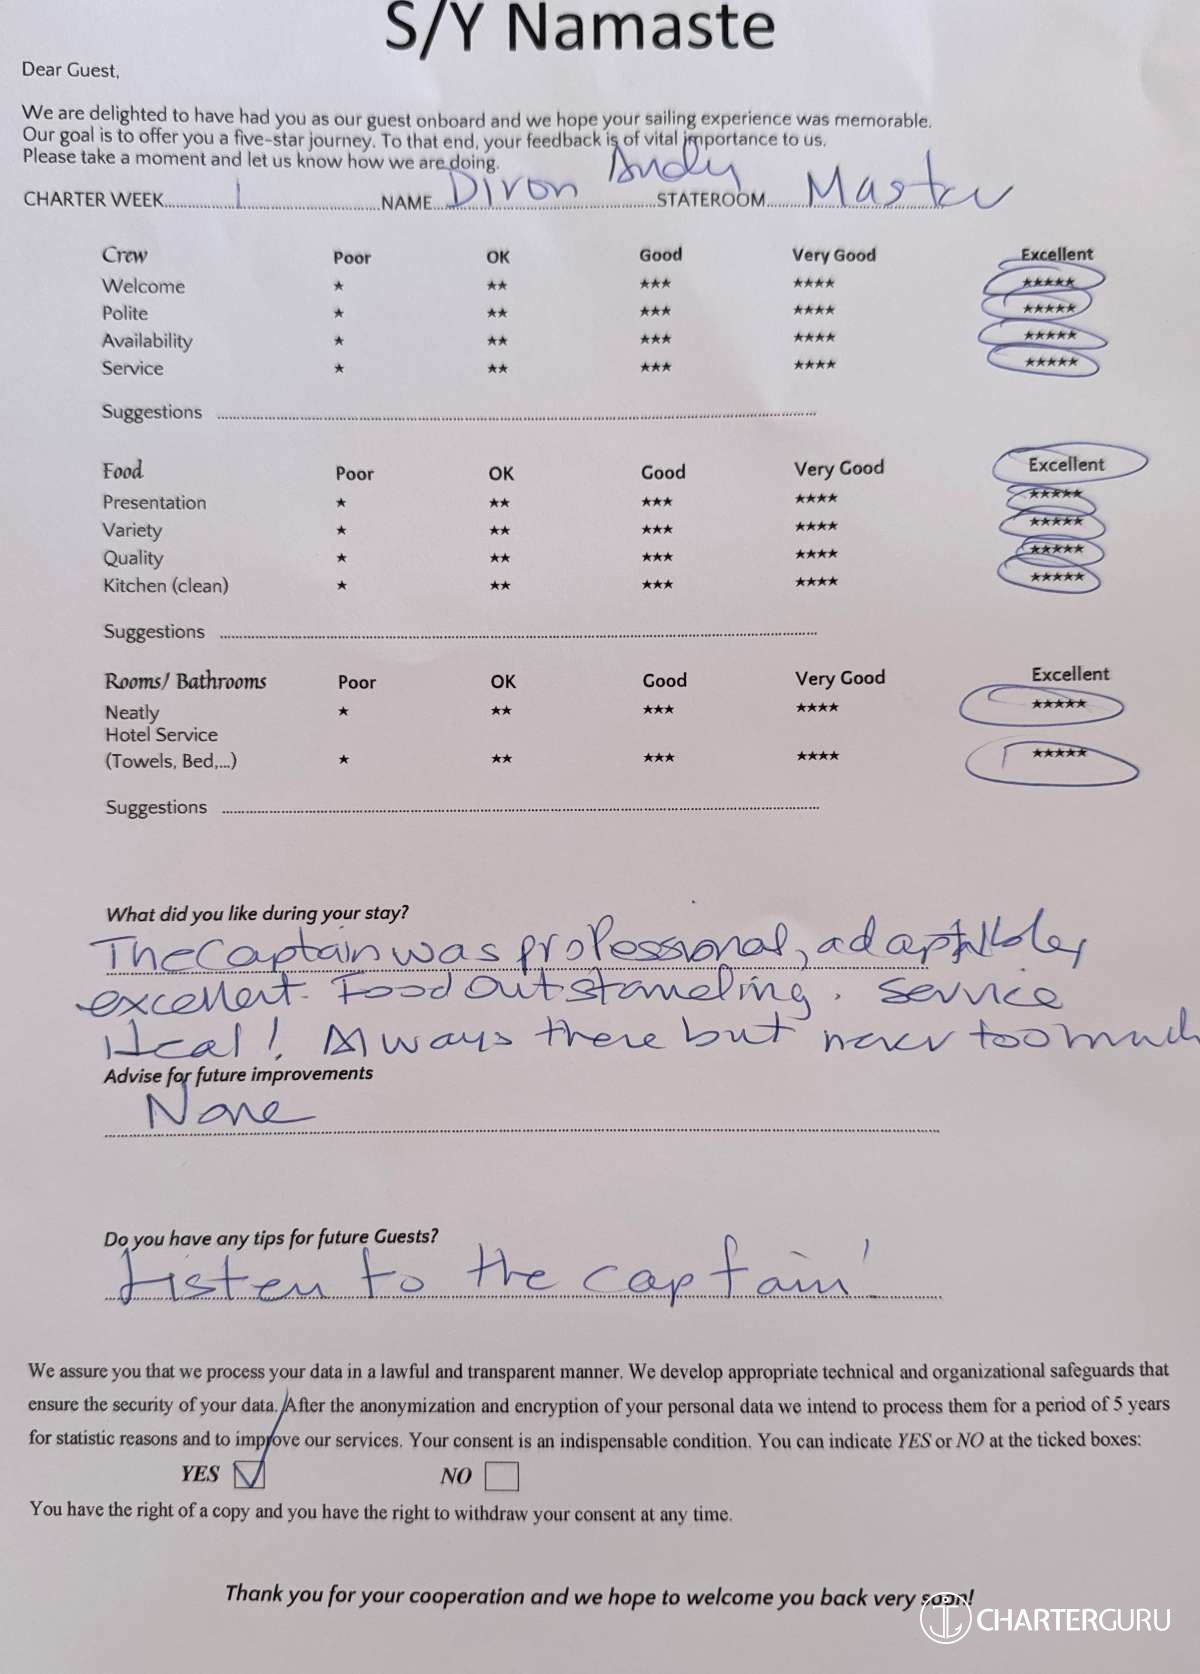 S/Y Namaste
Dear Guest,
We are delighted to have had you as our guest onboard and we hope your sailing experience was memorable.
Our goal is to offer you a five-star journey. To that end, your feedback is of vital importance to us.
Please take a moment and let us know how we are doing.
CHARTER WEEK 1 NAME Diron Andy STATEROOM Master
Crew Poor OK Good Very Good Excellent
Welcome ★ ★★ ★★★ ★★★★ ★★★★★
Polite ★ ★★ ★★★ ★★★★ ★★★★★
Availability ★ ★★ ★★★ ★★★★ ★★★★★
Service ★ ★★ ★★★ ★★★★ ★★★★★
Suggestions
Food Poor OK Good Very Good Excellent
Presentation ★ ★★ ★★★ ★★★★ ★★★★★
Variety ★ ★★ ★★★ ★★★★ ★★★★★
Quality ★ ★★ ★★★ ★★★★ ★★★★★
Kitchen (clean) ★ ★★ ★★★ ★★★★ ★★★★★
Suggestions
Rooms/ Bathrooms Poor OK Good Very Good Excellent
Neatly ★ ★★ ★★★ ★★★★ ★★★★★
Hotel Service
(Towels, Bed,...) ★ ★★ ★★★ ★★★★ ★★★★★
Suggestions
What did you like during your stay?
The Captain was professional, adaptable,
excellent. Food Outstanding. Service
Ideal! Always there but never too much
Advise for future improvements
None
Do you have any tips for future Guests?
Listen to the captain!
We assure you that we process your data in a lawful and transparent manner. We develop appropriate technical and organizational safeguards that
ensure the security of your data. After the anonymization and encryption of your personal data we intend to process them for a period of 5 years
for statistic reasons and to improve our services. Your consent is an indispensable condition. You can indicate YES or NO at the ticked boxes:
YES NO
You have the right of a copy and you have the right to withdraw your consent at any time.
Thank you for your cooperation and we hope to welcome you back very soon!
CHARTERGURU